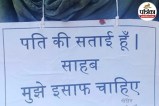 पत्रिका
पति की सताई हूँ।
साहब
मुझे इंसाफ चाहिए